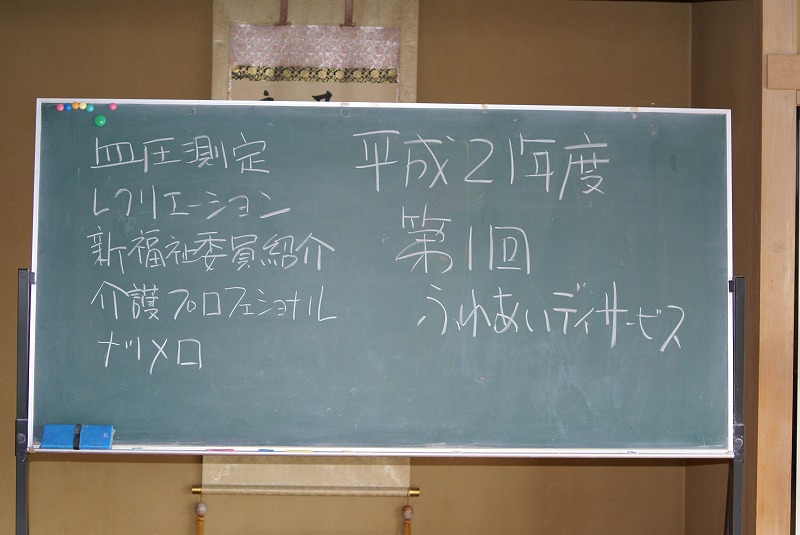 平成21年度
第1回
ふれあいディサービス
血圧測定
レクリエーション
新福祉委員紹介
介護プロフェショナル
ナツメロ